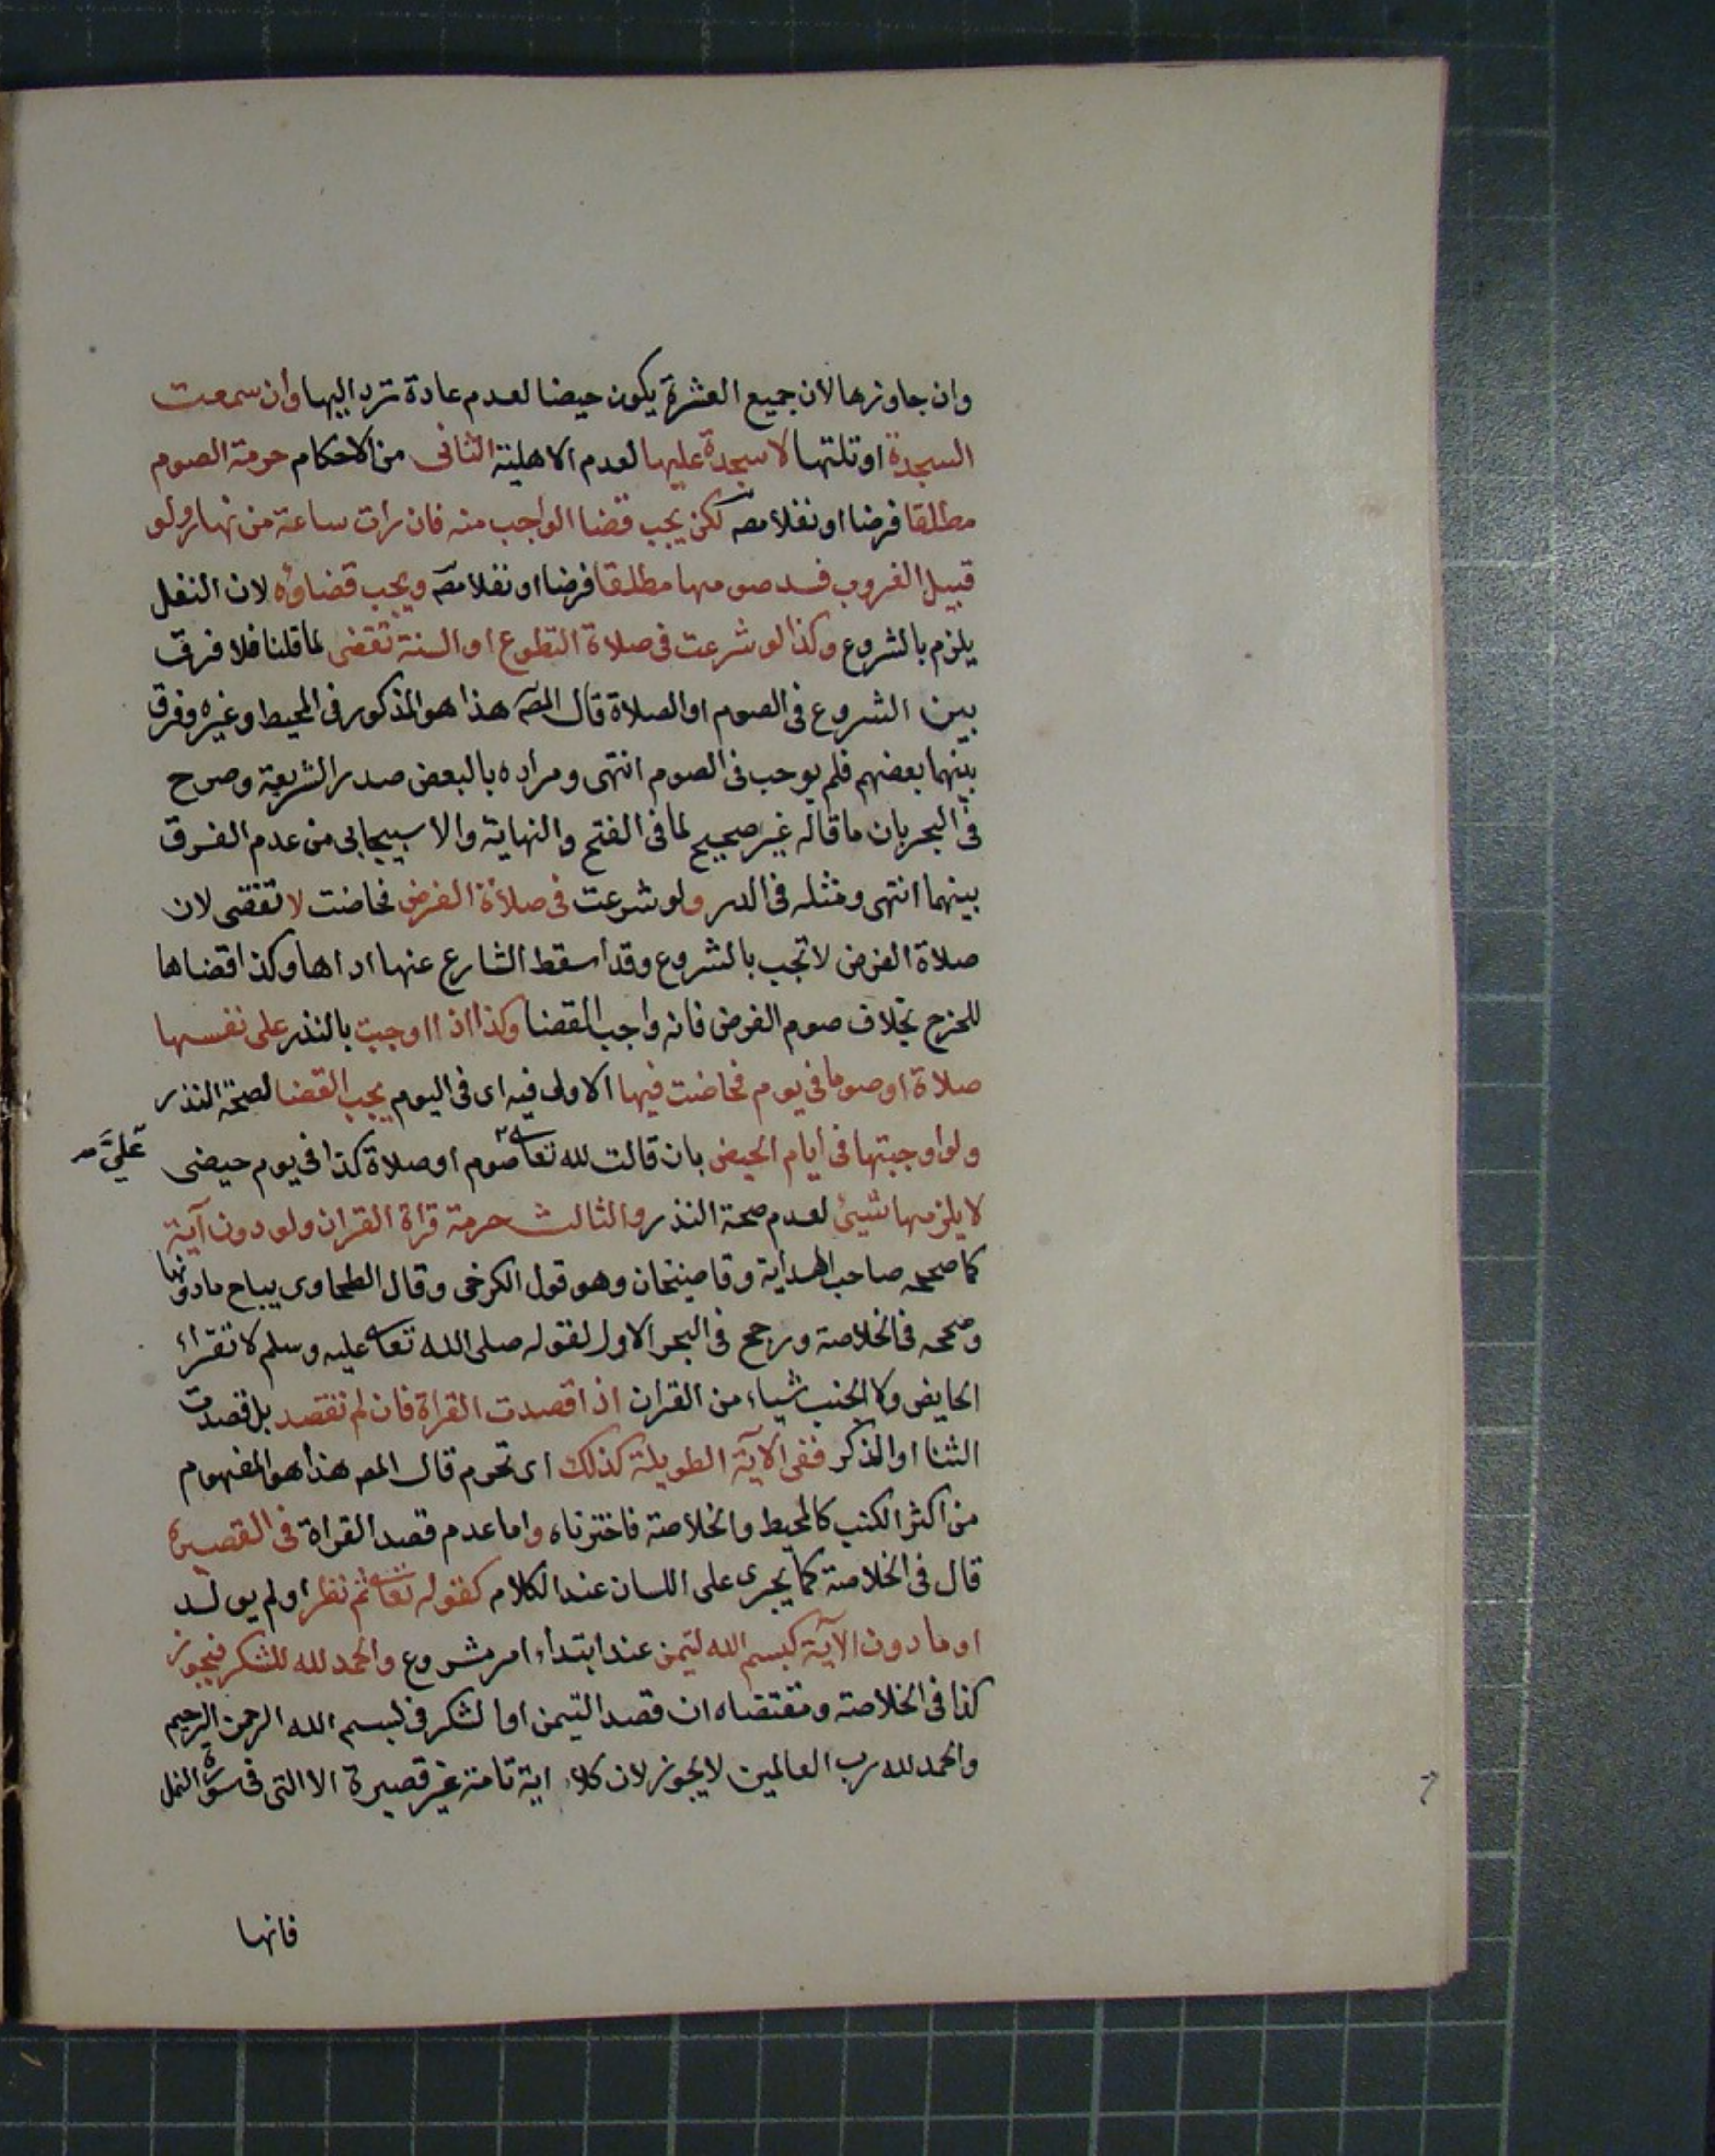 وان جاوزها لان جميع العشرة يكون حيضا لعدم عادة ترد اليها وان سمعت
السجدة او تلتها لا سجدة عليها لعدم الاهلية الثانى من الاحكام حرمة الصوم
مطلقا فرضا او نفلا مصـ لكن يجب قضا الواجب منه فان رات ساعة من نهار ولو
قبيل الغروب فسد صومها مطلقا فرضا او نفلا مصـ ويجب قضاؤه لان النفل
يلزم بالشروع وكذا لو شرعت فى صلاة التطوع او السنة تقضى لما قلنا فلا فرق
بين الشروع فى الصوم او الصلاة قال المصـ هذا هو المذكور فى المحيط وغيره وفرق
بينهما بعضهم فلم يوجب فى الصوم انتهى ومراده بالبعض صدر الشريعة وصرح
فى البحر بان ما قاله غير صحيح لما فى الفتح والنهاية والاسبيجابى من عدم الفرق
بينهما انتهى ومثله فى الدر ولو شرعت فى صلاة الفرض فحاضت لا تقضى لان
صلاة الفرض لا تجب بالشروع وقد اسقط الشارع عنها اداها وكذا قضاها
للحرج بخلاف صوم الفرض فانه واجب القضا وكذا اذا اوجبت بالنذر على نفسها
صلاة او صوما فى يوم فحاضت فيها الاولى فيه اى فى اليوم يجب القضا لصحة النذر
ولو اوجبتها فى ايام الحيض بان قالت لله تعا صوم او صلاة كذا فى يوم حيضى
عليَّ
لا يلزمها شيئ لعدم صحة النذر والثالث حرمة قراة القران ولو دون آية
كما صححه صاحب الهداية وقاضيخان وهو قول الكرخى وقال الطحاوى يباح ما دونها
وصححه فى الخلاصة ورجح فى البحر الاول لقوله صلى الله تعا عليه وسلم لا تقرأ
الحايض ولا الجنب شياء من القران اذا قصدت القراة فان لم تقصد بل قصدت
الثنا او الذكر ففى الآية الطويلة كذلك اى تحرم قال المصـ هذا هو المفهوم
من اكثر الكتب كالمحيط والخلاصة فاخترناه واما عدم قصد القراة فى القصيرة
قال فى الخلاصة كما يجرى على اللسان عند الكلام كقوله تعا ثم نظر او لم يولد
او ما دون الآية كبسم الله لتيمن عند ابتداء امر مشروع والحمد لله للشكر فيجوز
كذا فى الخلاصة ومقتضاه ان قصد التيمن او الشكر فى بسم الله الرحمن الرحيم
والحمد لله رب العالمين لا يجوز لان كلاء اية تامة غير قصيرة الا التى فى سورة النمل
فانها